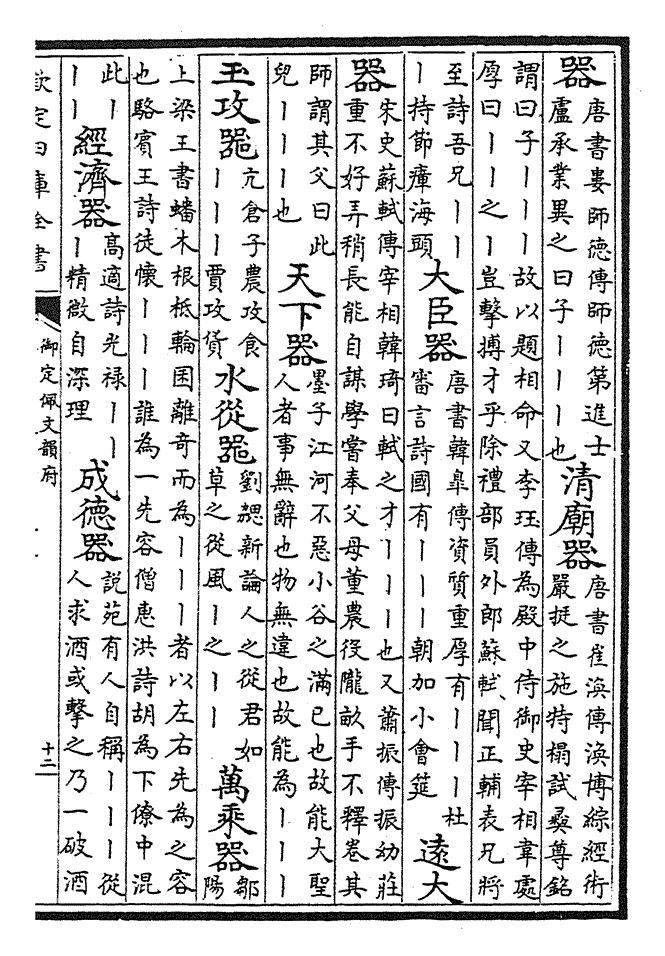 器唐書婁師德傳師德第進士
盧承業異之曰子丨丨丨也
清廟器唐書崔渙傳渙博綜經術
嚴挺之施特榻試彞尊銘
謂曰子丨丨丨故以題相命又李珏傳為殿中侍御史宰相韋處
厚曰丨丨之丨豈擊搏才乎除禮部員外郎蘇軾聞正輔表兄將
至詩吾兄丨丨
丨持節瘴海頭
大臣器唐書韓臯傳資質重厚有丨丨丨杜
審言詩國有丨丨丨朝加小會筵
遠大
器宋史蘇軾傳宰相韓琦曰軾之才丨丨丨也又蕭振傳振幼莊
重不好弄稍長能自謀學嘗奉父母董農役隴畝手不釋卷其
師謂其父曰此
兒丨丨丨也
天下器墨子江河不惡小谷之滿已也故能大聖
人者事無辭也物無違也故能為丨丨丨
玉攻器亢倉子農攻食
丨丨丨賈攻貨
水從器劉勰新論人之從君如
草之從風丨之丨丨
萬乘器鄒
陽
上梁王書蟠木根柢輪囷離奇而為丨丨丨者以左右先為之容
也駱賓王詩徒懷丨丨丨誰為一先容僧惠洪詩胡為下僚中混
此丨
丨丨
經濟器高適詩光祿丨丨
丨精微自深理
成德器說苑有人自稱丨丨丨從
人求酒或擊之乃一破酒
欽定四庫全書
御定佩文韻府
十二